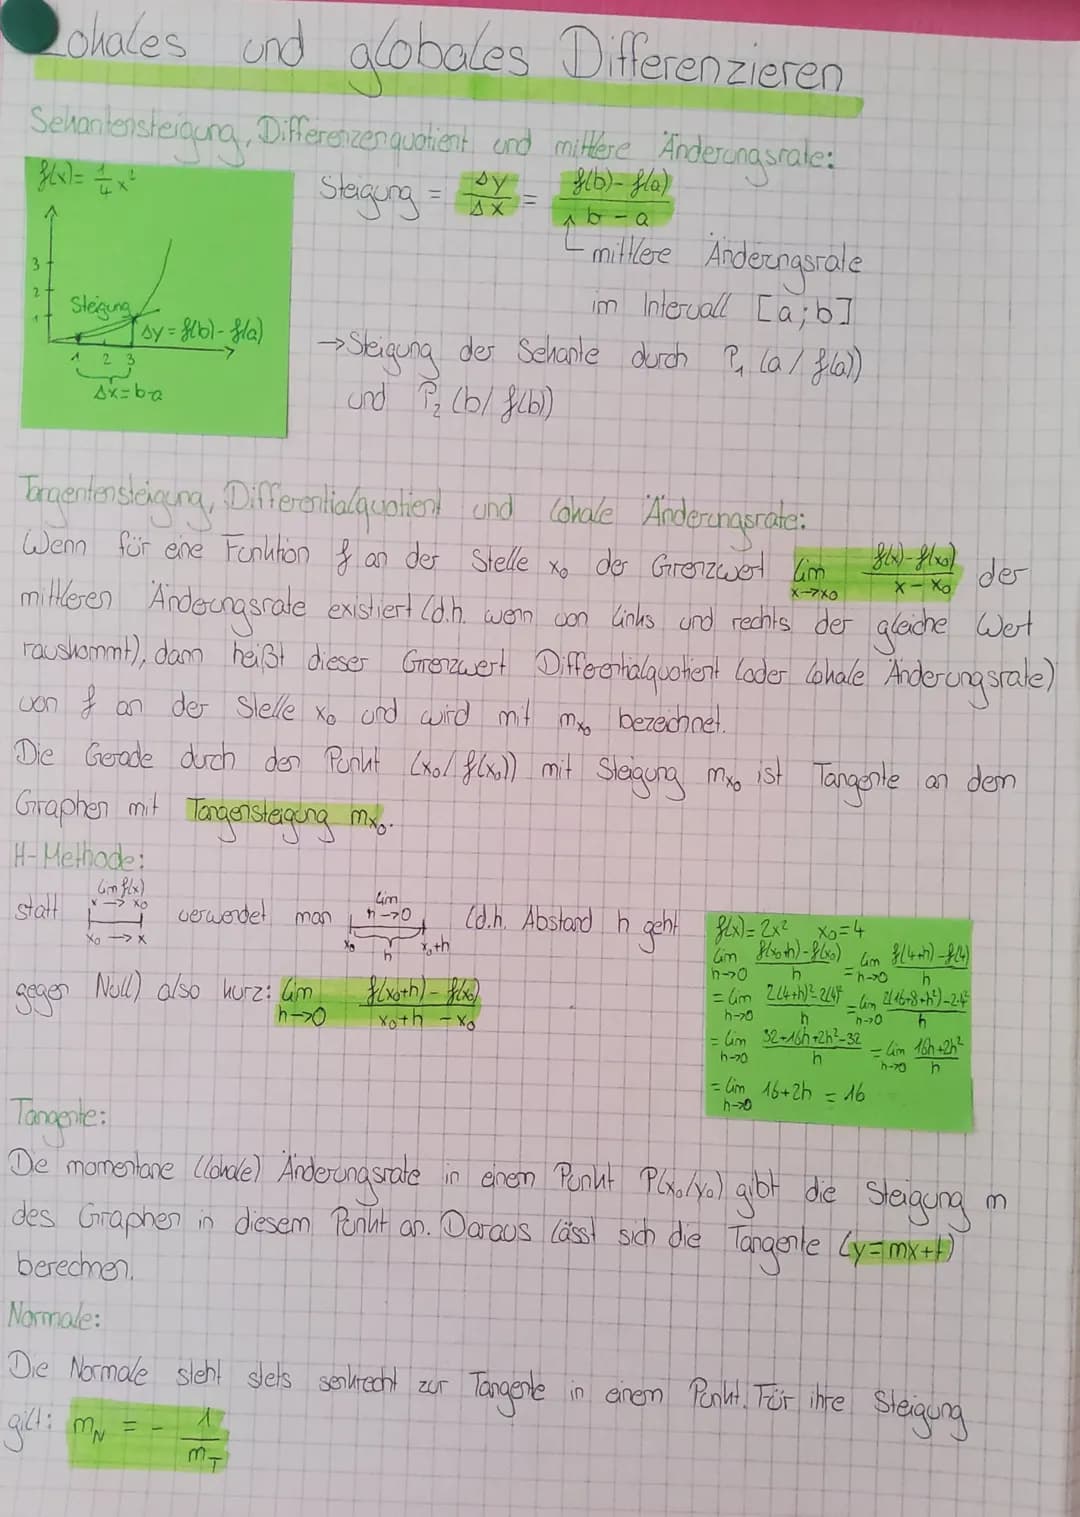 Lokales und globales Differenzieren
Sekantensteigung, Differenzenquotient und mittlere Änderungsrate:
f(x)= 1/4 x²
3
2
1
Steigung
Δy = f(b)-f(a)
1 2 3
Δx=b-a
Steigung = Δy/Δx = (f(b)-f(a))/(b-a)
mittlere Änderungsrate
im Intervall [a;b]
→Steigung der Sekante durch P₁ (a/f(a))
und P₂ (b/f(b))
Tangentensteigung, Differentialquotient und lokale Änderungsrate:
Wenn für eine Funktion f an der Stelle x₀ der Grenzwert lim x→x₀ (f(x)-f(x₀))/(x-x₀) der
mittleren Änderungsrate existiert (d.h. wenn von links und rechts der gleiche Wert
rauskommt), dann heißt dieser Grenzwert Differentialquotient (oder lokale Änderungsrate)
von f an der Stelle x₀ und wird mit mx₀ bezeichnet.
Die Gerade durch den Punkt (x₀/f(x₀)) mit Steigung mx₀ ist Tangente an dem
Graphen mit Tangensteigung mx₀.
H-Methode:
statt lim f(x) x→x₀ verwendet man lim h→0 (d.h. Abstand h geht
x₀→x
x₀ h x₀+h
gegen Null) also kurz: lim h→0 (f(x₀+h)-f(x₀))/(x₀+h-x₀)
f(x)=2x² x₀=4
lim h→0 (f(x₀+h)-f(x₀))/h = lim h→0 (f(4+h)-f(4))/h
= lim h→0 (2(4+h)²-2(4)²)/h = lim h→0 (2(16+8+h²)-2·4²)/h
= lim h→0 (32+16h+2h²-32)/h = lim h→0 (16h+2h²)/h
= lim h→0 16+2h = 16
Tangente:
Die momentane (lokale) Änderungsrate in einem Punkt P(x₀/y₀) gibt die Steigung m
des Graphen in diesem Punkt an. Daraus lässt sich die Tangente (y=mx+t)
berechnen.
Normale:
Die Normale steht stets senkrecht zur Tangente in einem Punkt. Für ihre Steigung
gilt: m_N = - 1/m_T